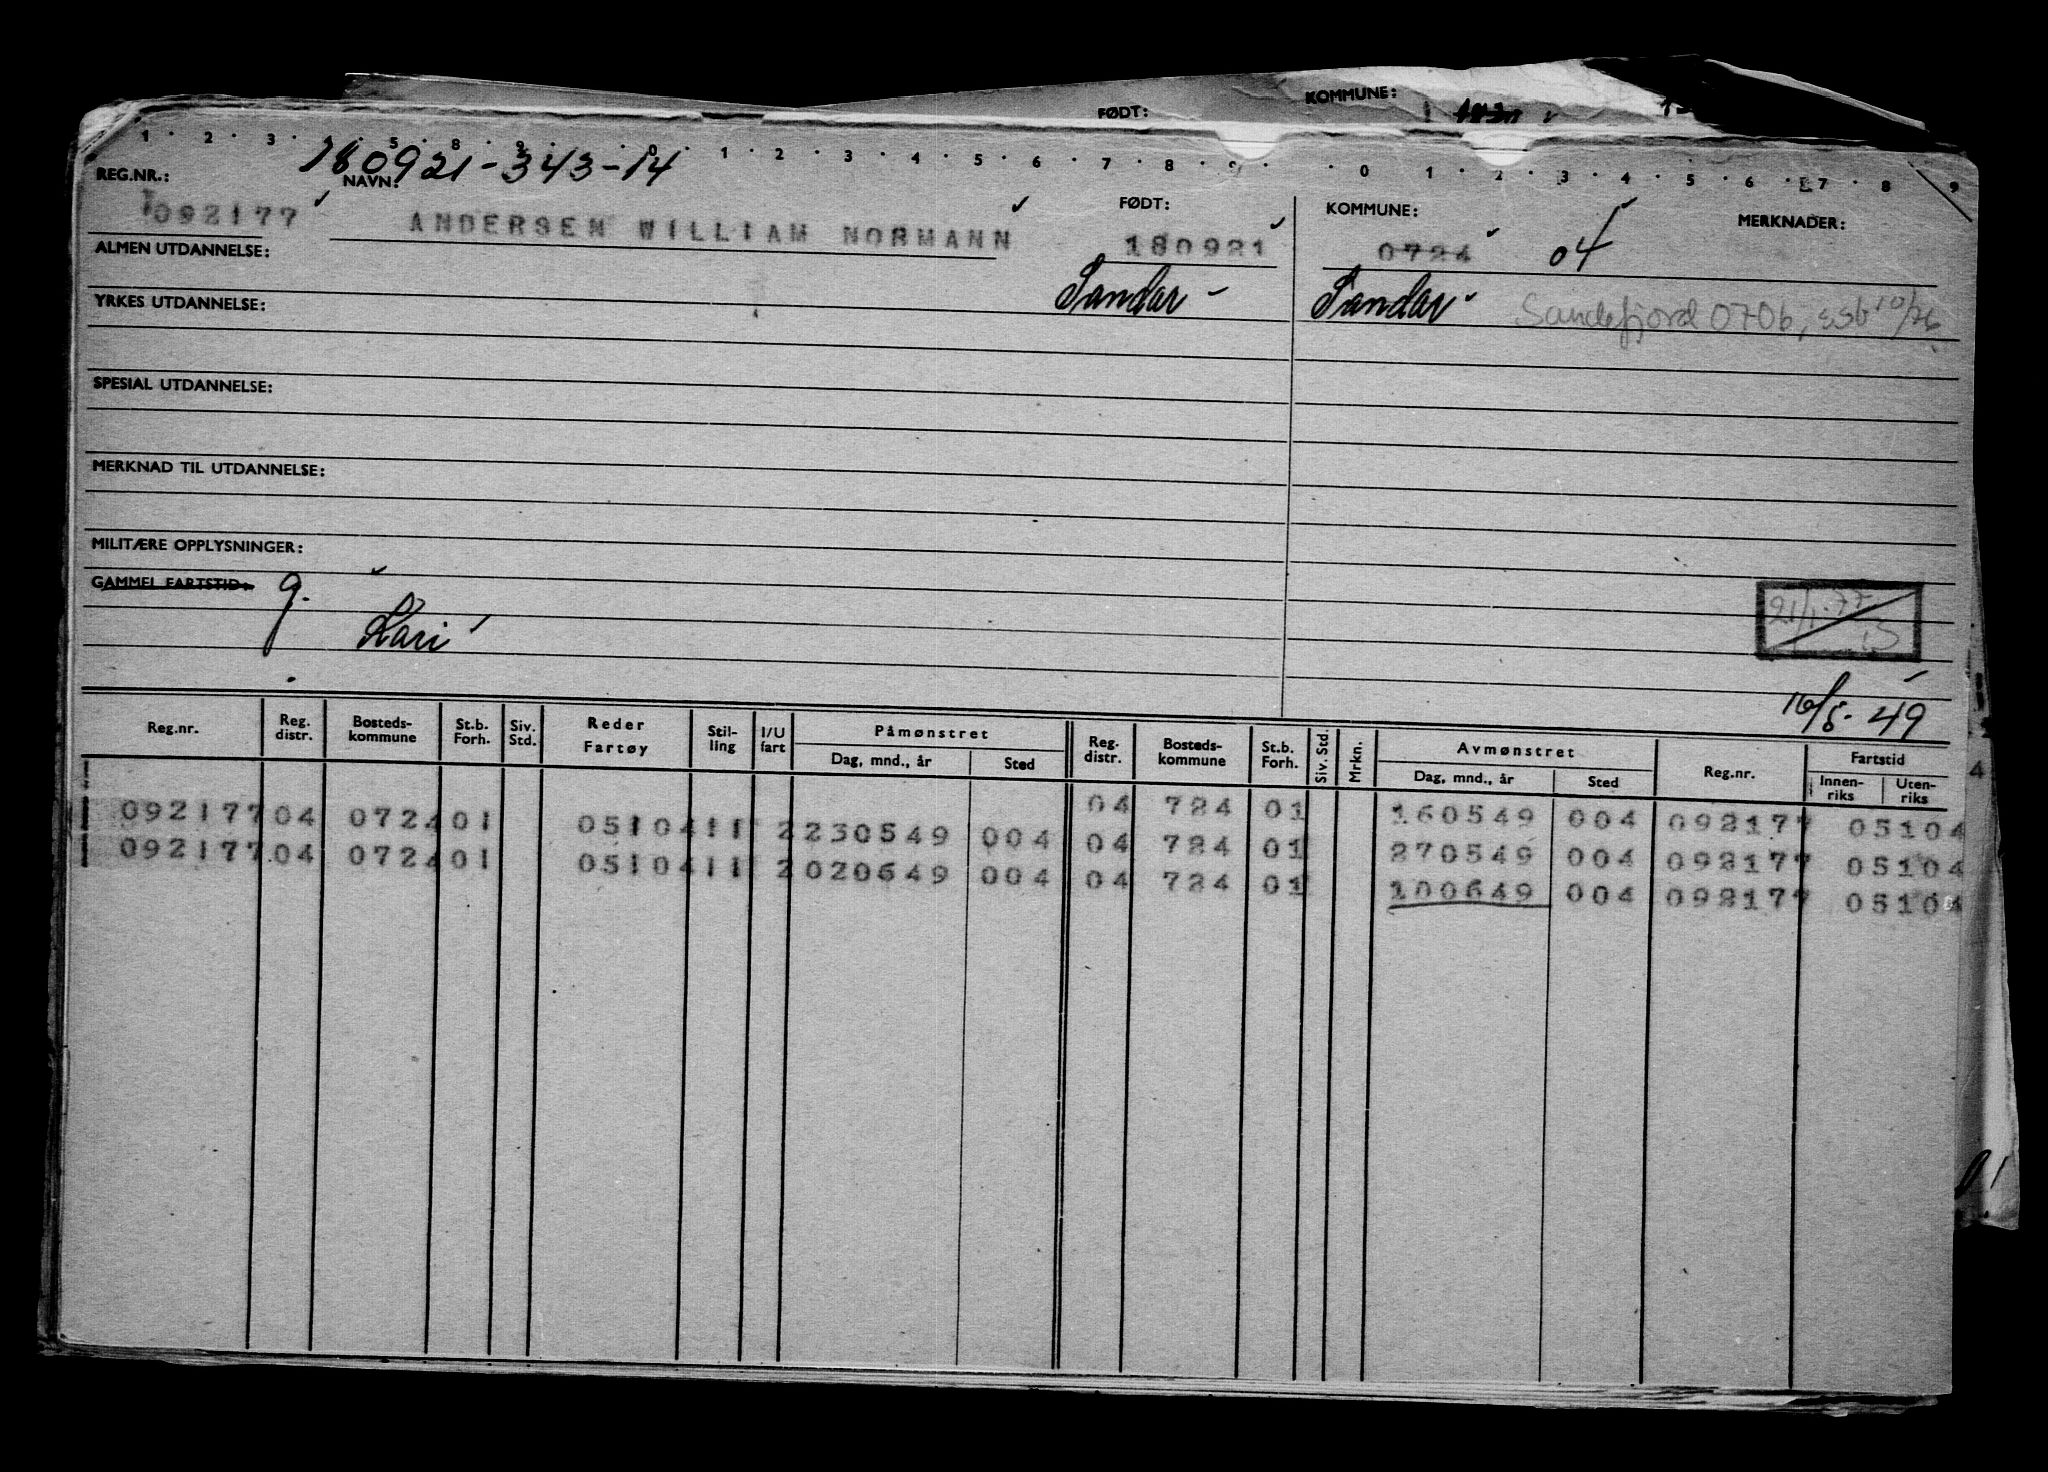 FØDT: KOMMUNE:
1 2 3 5 8 9 0 1 2 3 4 5 6 7 8 9 0 1 2 3 4 5 6 7 8 9
180921-343-14
REG.NR.: NAVN: FØDT: KOMMUNE: MERKNADER:
092177 ANDERSEN WILLIAM NORMANN 180921 0724 04
ALMEN UTDANNELSE:
Sandar Sandar Sandefjord 0706, SSB 10/76
YRKES UTDANNELSE:
SPESIAL UTDANNELSE:
MERKNAD TIL UTDANNELSE:
MILITÆRE OPPLYSNINGER:
GAMMEL FARTSTID: g.
Kari
21/1-77
16/5-49
Reg.nr. Reg. distr. Bosteds-kommune St.b. Forh. Siv. Std. Reder Fartøy Stil-ling I/U fart Påmønstret Dag, mnd., år Sted Reg. distr. Bosteds-kommune St.b. Forh. Siv. Std. Mrkn. Avmønstret Dag, mnd., år Sted Reg.nr. Fartstid Innen-riks Uten-riks
04 724 01 160549 004 092177 05104
092177 04 0724 01 05104 11 2 230549 004 04 724 01 270549 004 092177 05104
092177 04 0724 01 05104 11 2 020649 004 04 724 01 100649 004 092177 05104
4